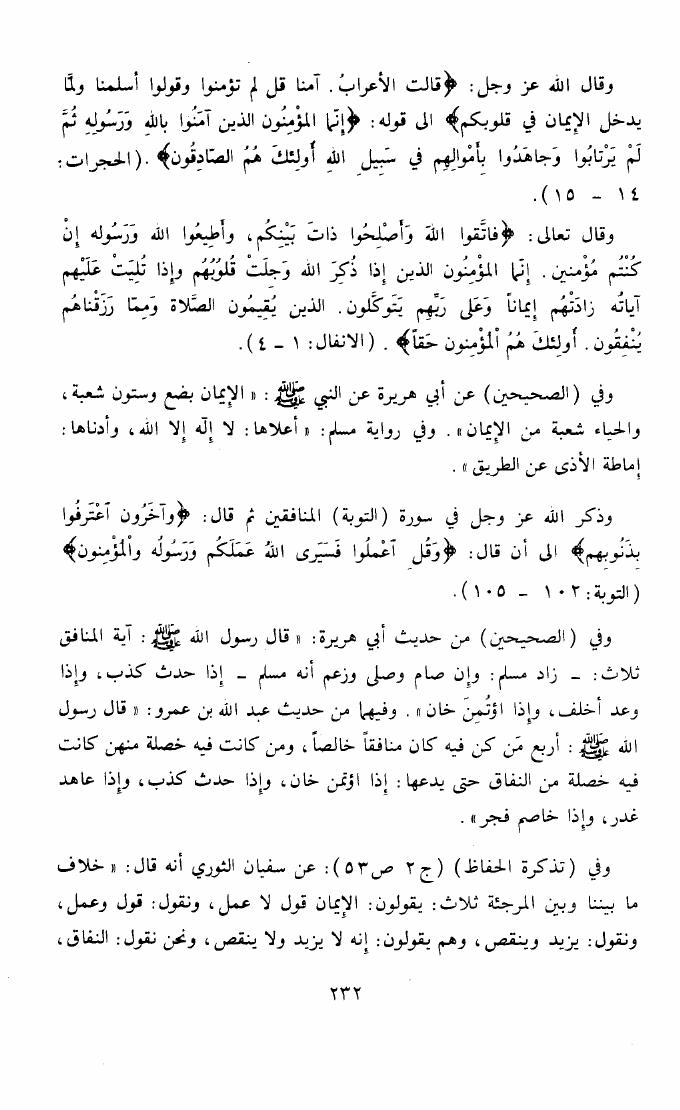 وقال الله عز وجل: ﴿قالت الأعرابُ. آمنا قل لم تؤمنوا وقولوا أسلمنا ولمَّا
يدخل الإيمان في قلوبكم﴾ الى قوله: ﴿إِنَّما المؤْمِنُون الذين آمَنُوا بالله وَرَسُولِهِ ثُمَّ
لَمْ يَرْتابُوا وَجاهَدُوا بِأَمْوالِهِم في سَبِيلِ اللهِ أُولئِكَ هُمُ الصّادِقُون﴾ .(الحجرات:
١٤ – ١٥).
وقال تعالى: ﴿فاتَّقوا اللهَ وَأَصْلِحُوا ذاتَ بَيْنِكُم، وأَطِيعُوا الله وَرَسُوله إنْ
كُنْتُم مُؤْمنين. إنّما المؤمِنُون الذين إذا ذُكِرَ الله وَجِلَتْ قُلُوبُهُم وإذا تُلِيَتْ عَلَيْهِم
آياتُه زادَتْهُم إيماناً وَعَلى رَبِّهِم يَتَوكَّلون. الذين يُقِيمُون الصَّلاة وَمِمّا رَزَقْناهُم
يُنْفِقُون. أولئِكَ هُمُ المؤْمِنون حَقاً﴾ . (الانفال: ١ – ٤).
وفي (الصحيحين) عن أبي هريرة عن النبي ﷺ : « الإيمان بضع وستون شعبة،
والحياء شعبة من الإيمان». وفي رواية مسلم: « أعلاها: لا إلّه إلا الله، وأدناها:
إماطة الأذى عن الطريق » .
وذكر الله عز وجل في سورة (التوبة) المنافقين ثم قال: ﴿وآخَرُون اعْتَرفُوا
بِذَنُوبِهم﴾ الى أن قال: ﴿وَقُلِ اعْملُوا فَسَيَرى اللهُ عَمَلَكُم وَرَسُولُه والمْؤمِنون﴾
(التوبة: ١٠٢ – ١٠٥).
وفي (الصحيحين) من حديث أبي هريرة: « قال رسول الله ﷺ : آية المنافق
ثلاث: – زاد مسلم: وإن صام وصلى وزعم أنه مسلم – إذا حدث كذب، وإذا
وعد أخلف، وإذا اؤتُمِنَ خان» . وفيهما من حديث عبد الله بن عمرو: « قال رسول
الله ﷺ : أربع مَن كن فيه كان منافقاً خالصاً، ومن كانت فيه خصلة منهن كانت
فيه خصلة من النفاق حتى يدعها: إذا اؤتمن خان، وإذا حدث كذب، وإذا عاهد
غدر، وإذا خاصم فجر» .
وفي (تذكرة الحفاظ) (ج٢ ص٥٣): عن سفيان الثوري أنه قال: « خلاف
ما بيننا وبين المرجئة ثلاث: يقولون: الإيمان قول لا عمل، ونقول: قول وعمل،
ونقول: يزيد وينقص، وهم يقولون: إنه لا يزيد ولا ينقص، ونحن نقول: النفاق،
٢٣٢